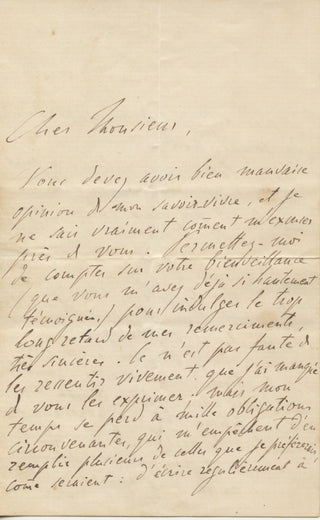 Cher Monsieur,
Vous devez avoir bien mauvaise
opinion de mon savoir-vivre, et je
ne sais vraiment coment m'excuser
près de vous. Permettez-moi
de compter sur votre bienveillance
que vous m'avez déjà si hautement
témoignée, pour indulger le trop
long retard de mes remerciments,
très sincères. Ce n'est pas faute de
les ressentir vivement que j'ai manqué
de vous les exprimer. Mais mon
temps se perd à mille obligations
circonvenantes, qui m'empêchent d'en
remplir plusieurs de celles que je préférerais
come seraient: d'écrire régulièrement à